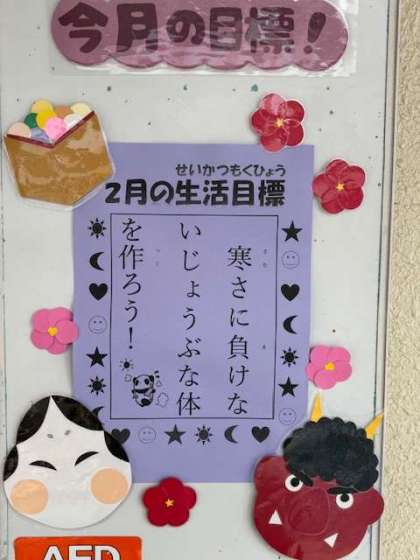 今月の目標!
せいかつもくひょう
2月の生活目標
寒さに負けな
いじょうぶな体
を作ろう!
AED